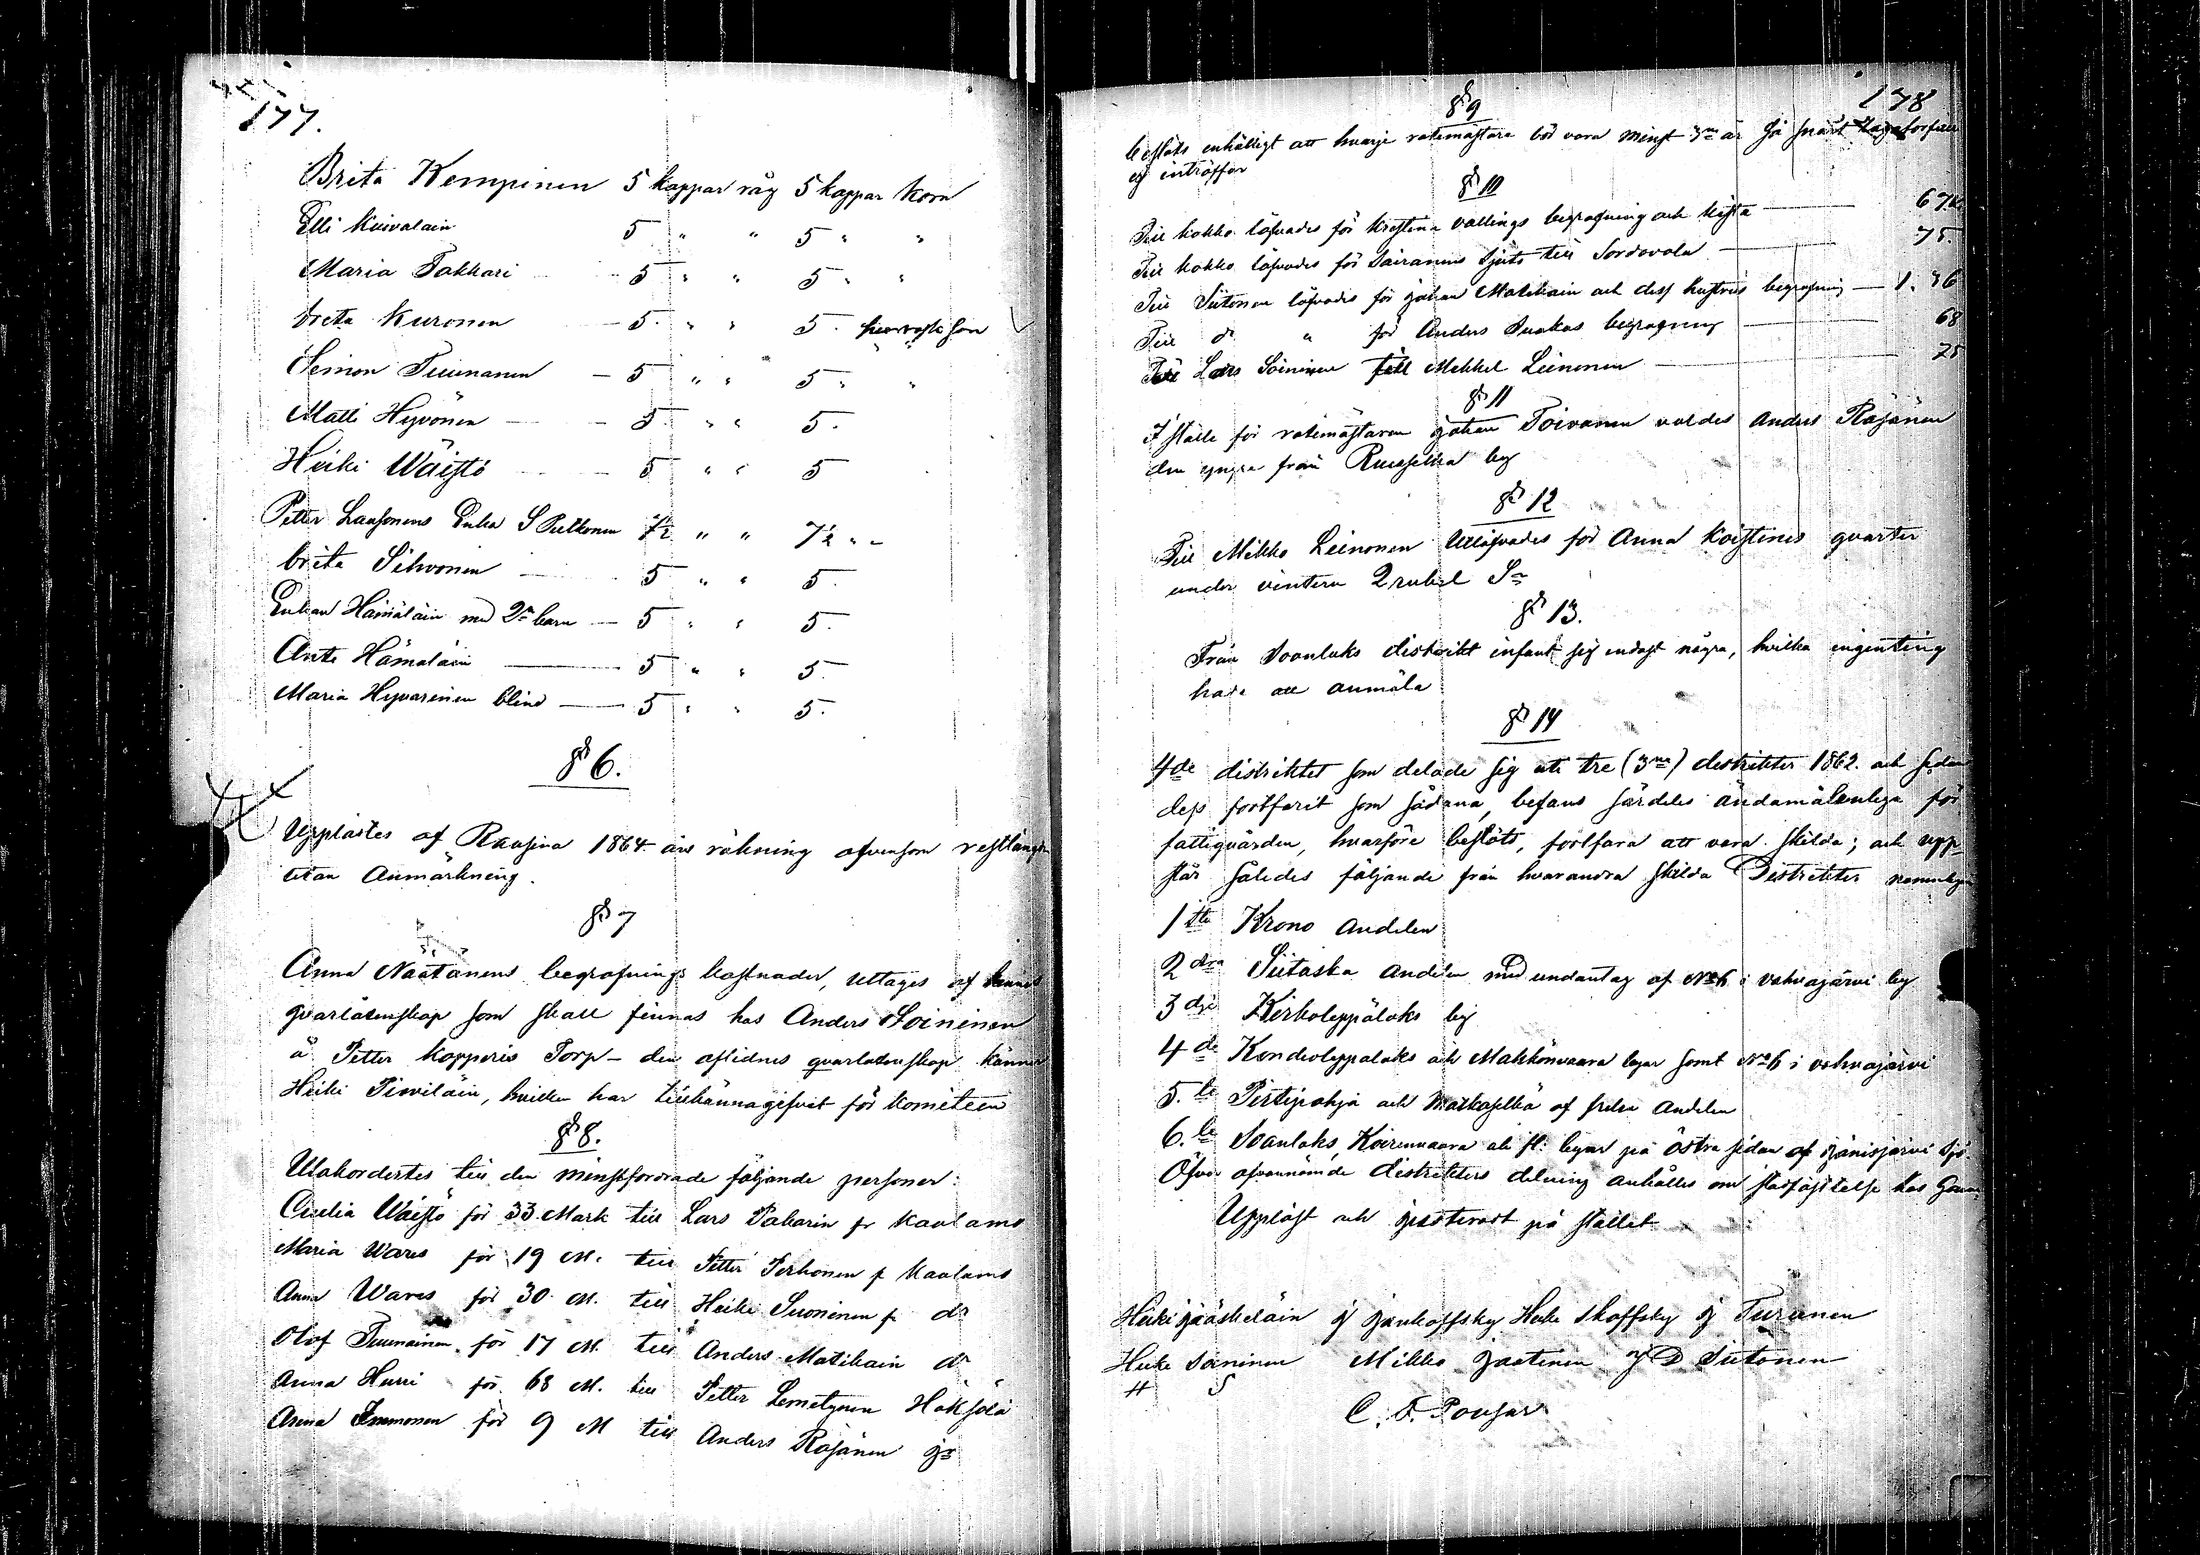 177.
Brita Kempinen 5 kappar råg 5 kappar korn
Elli Kuivalain 5 " " 5 " "
Maria Takkari 5 " " 5 " "
brita Kuronen 5 " " 5
Simon Tuunanen 5 " " 5 " "
Matti Hyvönen 5 " " 5
Heiki Wäistö 5 " " 5
Petter Laasonens Enka S Pulkonen 7½ " " 7½ " "
brita Sihvonen 5 " " 5
Enkan Hämäläin med 2ne barn 5 " " 5
Anti Hämäläin 5 " " 5
Maria Hyvarinen blind 5 " " 5
§ 6.
Upplästes af Raasina 1864 års räkning äfvensom restlängden
utan Anmärkning.
§ 7
Anna Näätänens begrafnings kostnader, uttages af hennes
qvarlåtenskap som skall finnas hos Anders Soininen
å Petter Kopperis Torp – den aflidnes qvarlatenskap känner
Heiki Pioviläin, hvilken har tillkännagifvit för komiteen
§ 8.
Utakordertes till den minstfordrade följande personer:
Cicelia Wäistö för 33 Mark till Lars Pakarin fr Kaalamo
Maria Wares för 19 M. till Petter Perhonen f Kaalamo
Anna Wares för 30 M. till Heiki Suoninen f do
Olof Tuunainen för 17 M. till Anders Matikain do
Anna Hurri för 68 M. till Petter Lemetyinen Hoksölä
Anna Immonen för 9 M till Anders Räsänen jr
178
§ 9
beslöts enhälligt att hvarje rotemästare bör vara minst 3ne år så snart
ej inträffar
§ 10
Till kokko löfvades för Kristina vallings begrafning och kista 67
Till kokko löfvades för Sairanens skjuts till Sordavala 75.
Till Siitonen löfvades för Johan Matikain och dess hustrus begrafning 1. 36
Till do " för Anders Suokas begrafning 68
Lars Soininen till Mikkel Leinonen 75
§ 11
I ställe för rotemästaren Johan Toivanen valdes Anders Räsänen
den yngre från Ruuselka by
§ 12
Till Mikko Leinonen utlåfvades för Anna Koistines qvarter
under vintern 2 rubel Sr
§ 13.
Från Soanlaks distrikt infant sig endast några, hvilka ingenting
hade att anmäla
§ 14
4de distriktet som delade sig uti tre (3ne) distrikter 1862. och sedan
dess fortfarit som sådana, befans särdeles ändamålsenliga för
fattigvården, hvarföre beslöts, fortfara att vara skilda; och upp-
står således följande från hvarandra skilda Distrikter nemligen
1sta Krono andelen
2dra Siitaska andelen med undantag af No 6 i vahvajärvi by
3dje Kirkoleppälaks by
4de Kondioleppalaks och Makkonvaara byar samt No 6 i vahvajärvi
5.te Pirttipohja och Matkaselkä af frelse Andelen
6.te Soanlaks, Koirinvaara och fl. byar på östra sidan af Jänisjärvi sjö
Öfver ofvannämnde distrikters delning anhålles om stadfästelse hos
Uppläst och justeradt på stället
Heiki Jääskeläin J Jankoffsky Heike Skoffsky J Turunen
Heike Soininen Mikko Jaatinen J D Siitonen
H S
C. F. Ponsar